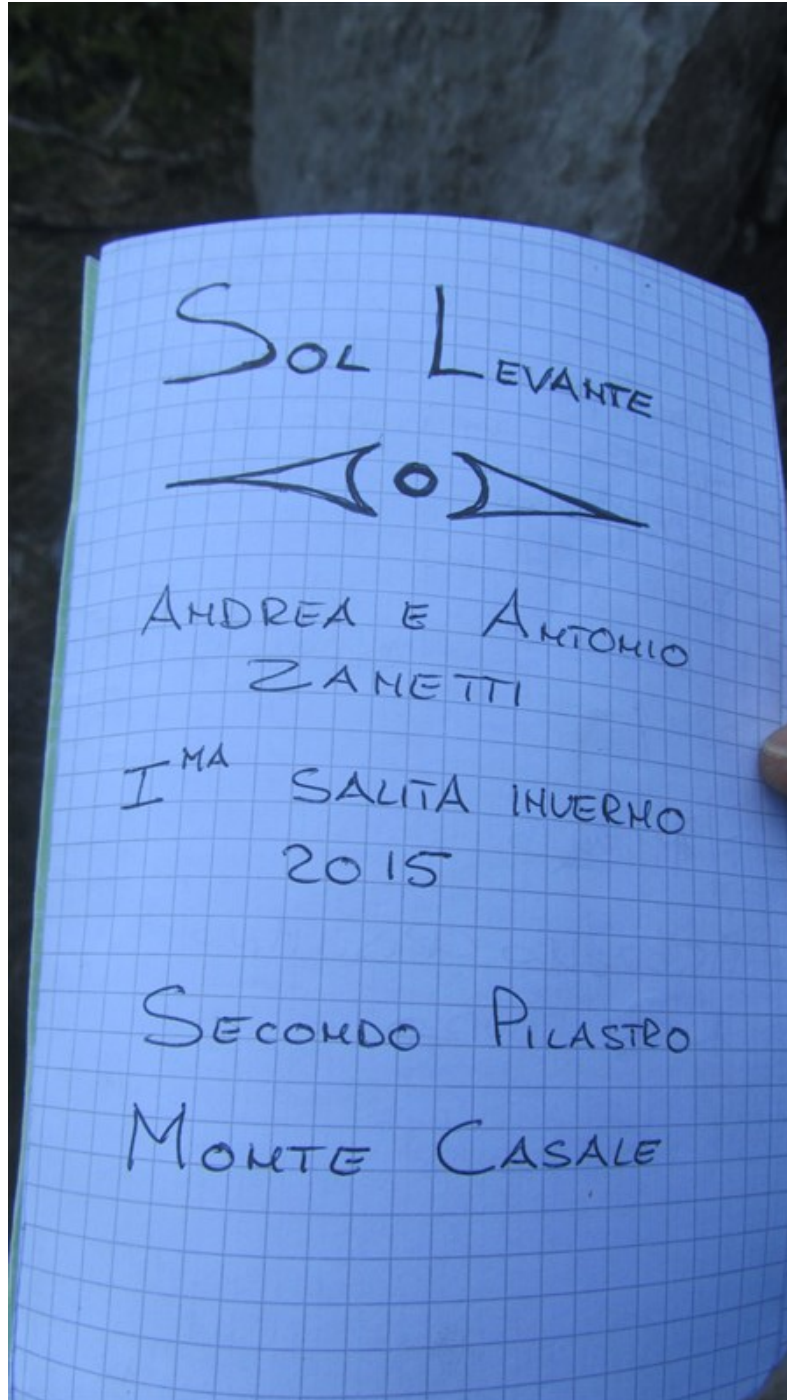 SOL LEVANTE
ANDREA E ANTONIO
ZANETTI
I MA SALITA INVERNO
2015
SECONDO PILASTRO
MONTE CASALE